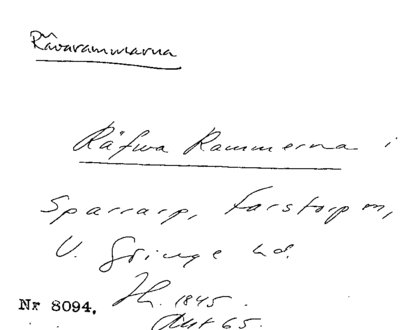 Rävarammarna
Räfwa Rammerna i
Sparrarp, Farstorp sn,
V. Göinge hd.
Nr 8094. Jh. 1845.
Akt 65.